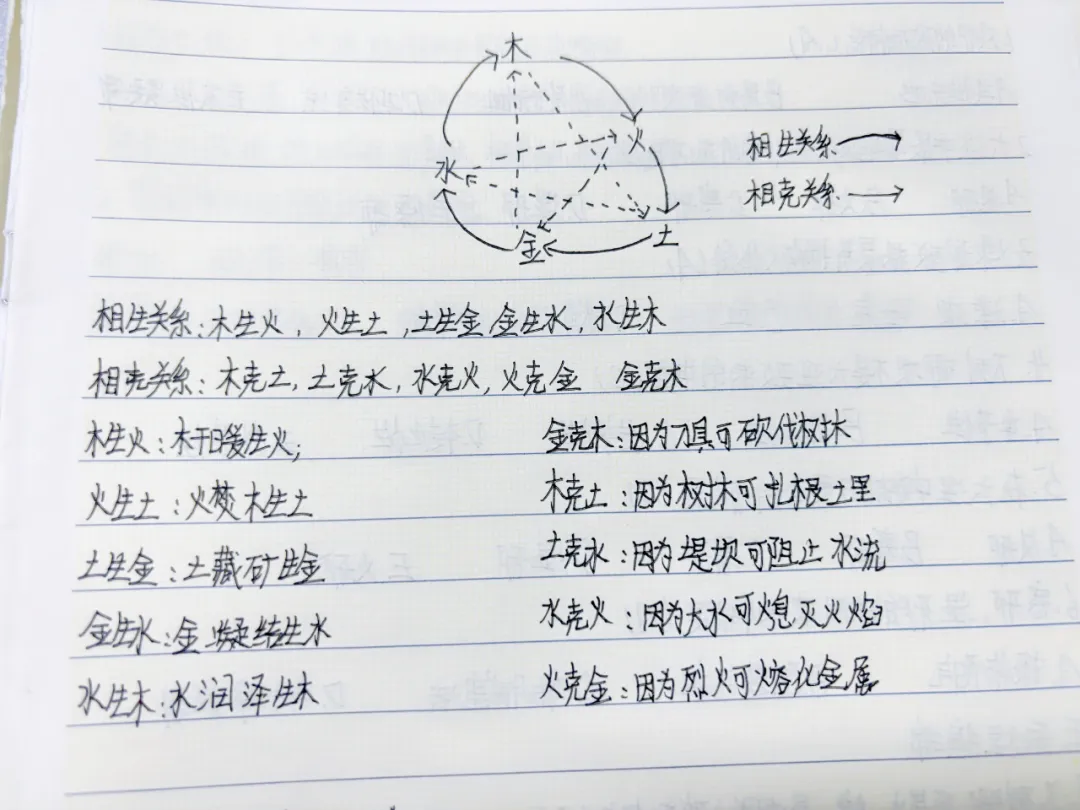 木
火
相生关系
水
相克关系
金
土
相生关系:木生火,火生土,土生金,金生水,水生木
相克关系:木克土,土克水,水克火,火克金 金克木
木生火:木干暖生火; 金克木:因为刀具可砍伐树木
火生土:火焚木生土 木克土:因为树木可扎根土里
土生金:土藏矿生金 土克水:因为堤坝可阻止水流
金生水:金凝结生水 水克火:因为大水可熄灭火焰
水生木:水润泽生木 火克金:因为烈火可熔化金属